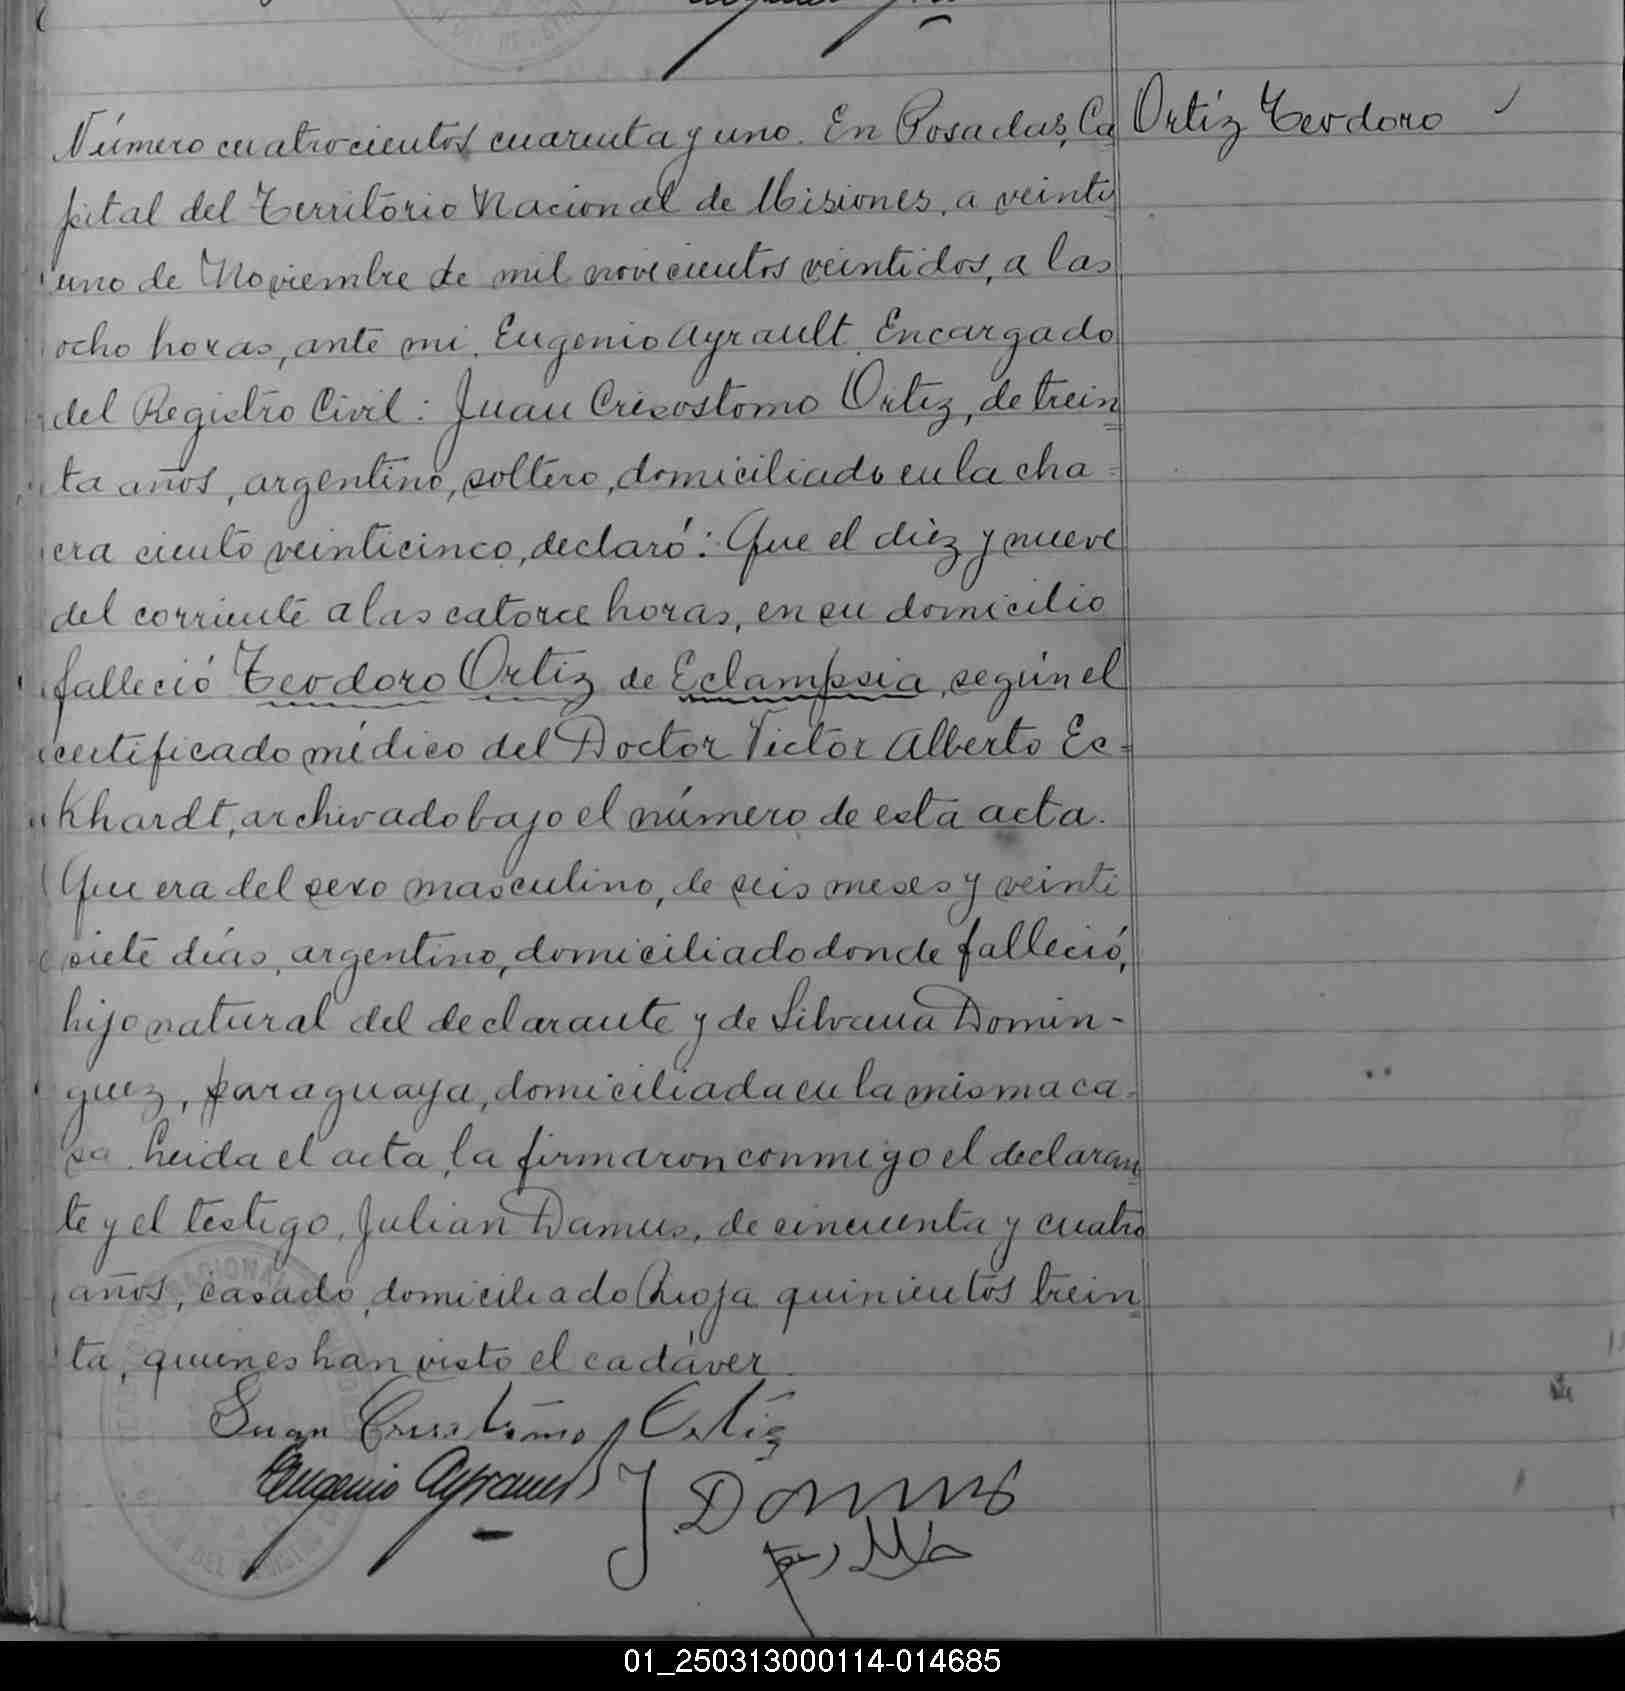 Número cuatrocientos cuarenta y uno. En Posadas, Ca
Ortíz Teodoro
pital del Territorio Nacional de Misiones, a veinti
uno de Noviembre de mil novecientos veintidos, a las
ocho horas, ante mi, Eugenio Ayrault, Encargado
del Registro Civil: Juan Crisostomo Ortiz, de trein
ta años, argentino, soltero, domiciliado en la cha=
cra ciento veinticinco, declaró: Que el diez y nueve
del corriente a las catorce horas, en su domicilio
falleció Teodoro Ortiz de Eclampsia, según el
certificado médico del Doctor Victor Alberto Ec=
khardt, archivado bajo el número de esta acta.
Que era del sexo masculino, de seis meses y veinti
siete días, argentino, domiciliado donde falleció,
hijo natural del declarante y de Silvana Domin-
guez, paraguaya, domiciliada en la misma ca-
sa. Leida el acta, la firmaron conmigo el declaran
te y el testigo, Julian Damus, de cincuenta y cuatro
años, casado, domiciliado Rioja quinientos trein
ta, quienes han visto el cadáver.
Juan Crisostomo Ortiz
Eugenio Ayrault
J. Damus
01_250313000114-014685